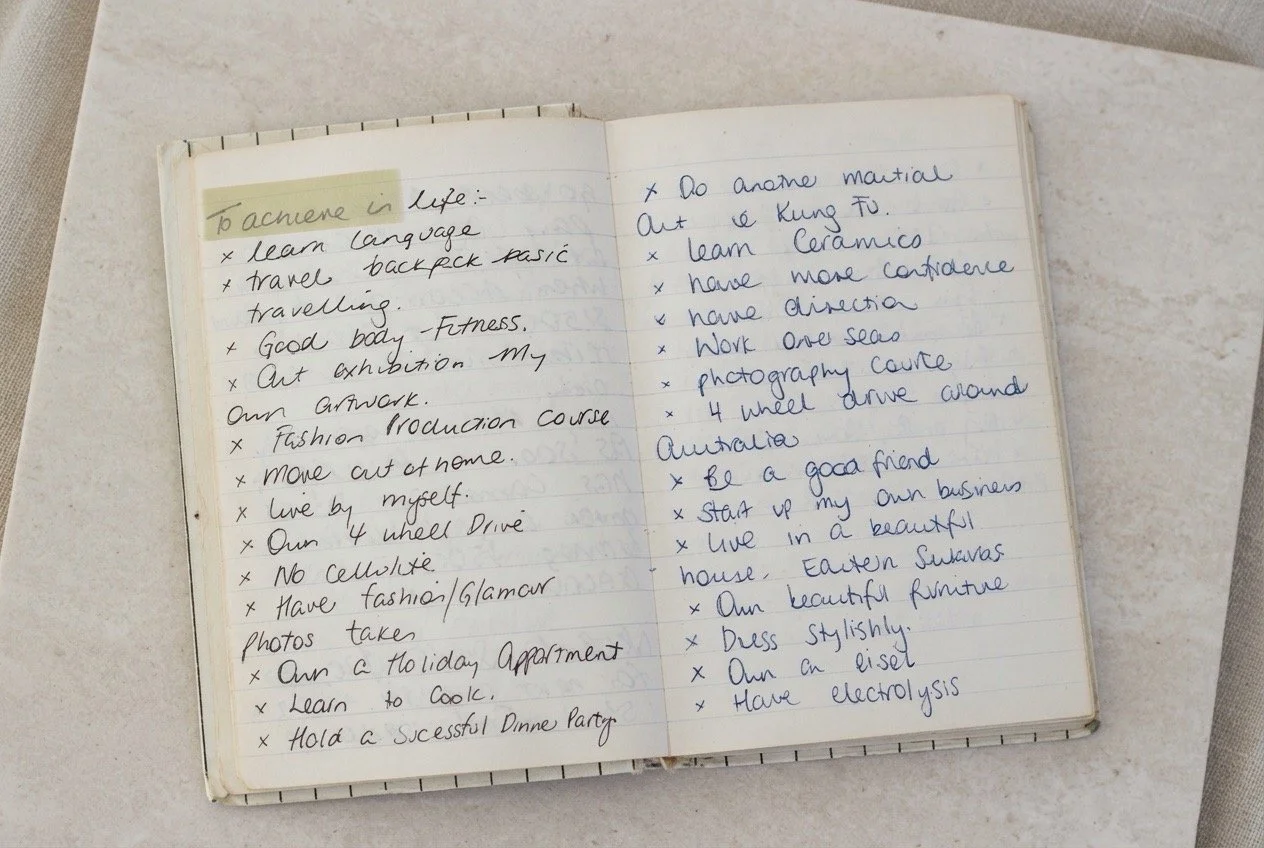 To achieve in life:-
x learn language
x travel backpack basic
travelling.
x Good body - Fitness.
x Art exhibition - My
Own artwork.
x Fashion Production course
x move out of home.
x live by myself.
x Own 4 wheel Drive
x No cellulite
x Have fashion/Glamour
Photos taken
x Own a Holiday Appartment
x Learn to Cook.
x Hold a Sucessful Dinner Party
x Do another martial
Art Kung Fu.
x learn Ceramics
x have more confidence
x have direction
x Work over seas
x photography course
x 4 wheel drive around
Australia
x Be a good friend
x Start up my own business
x Live in a beautiful
house. Eastern Suburbs
x Own beautiful furniture
x Dress stylishly.
x Own an eisel
x Have electrolysis